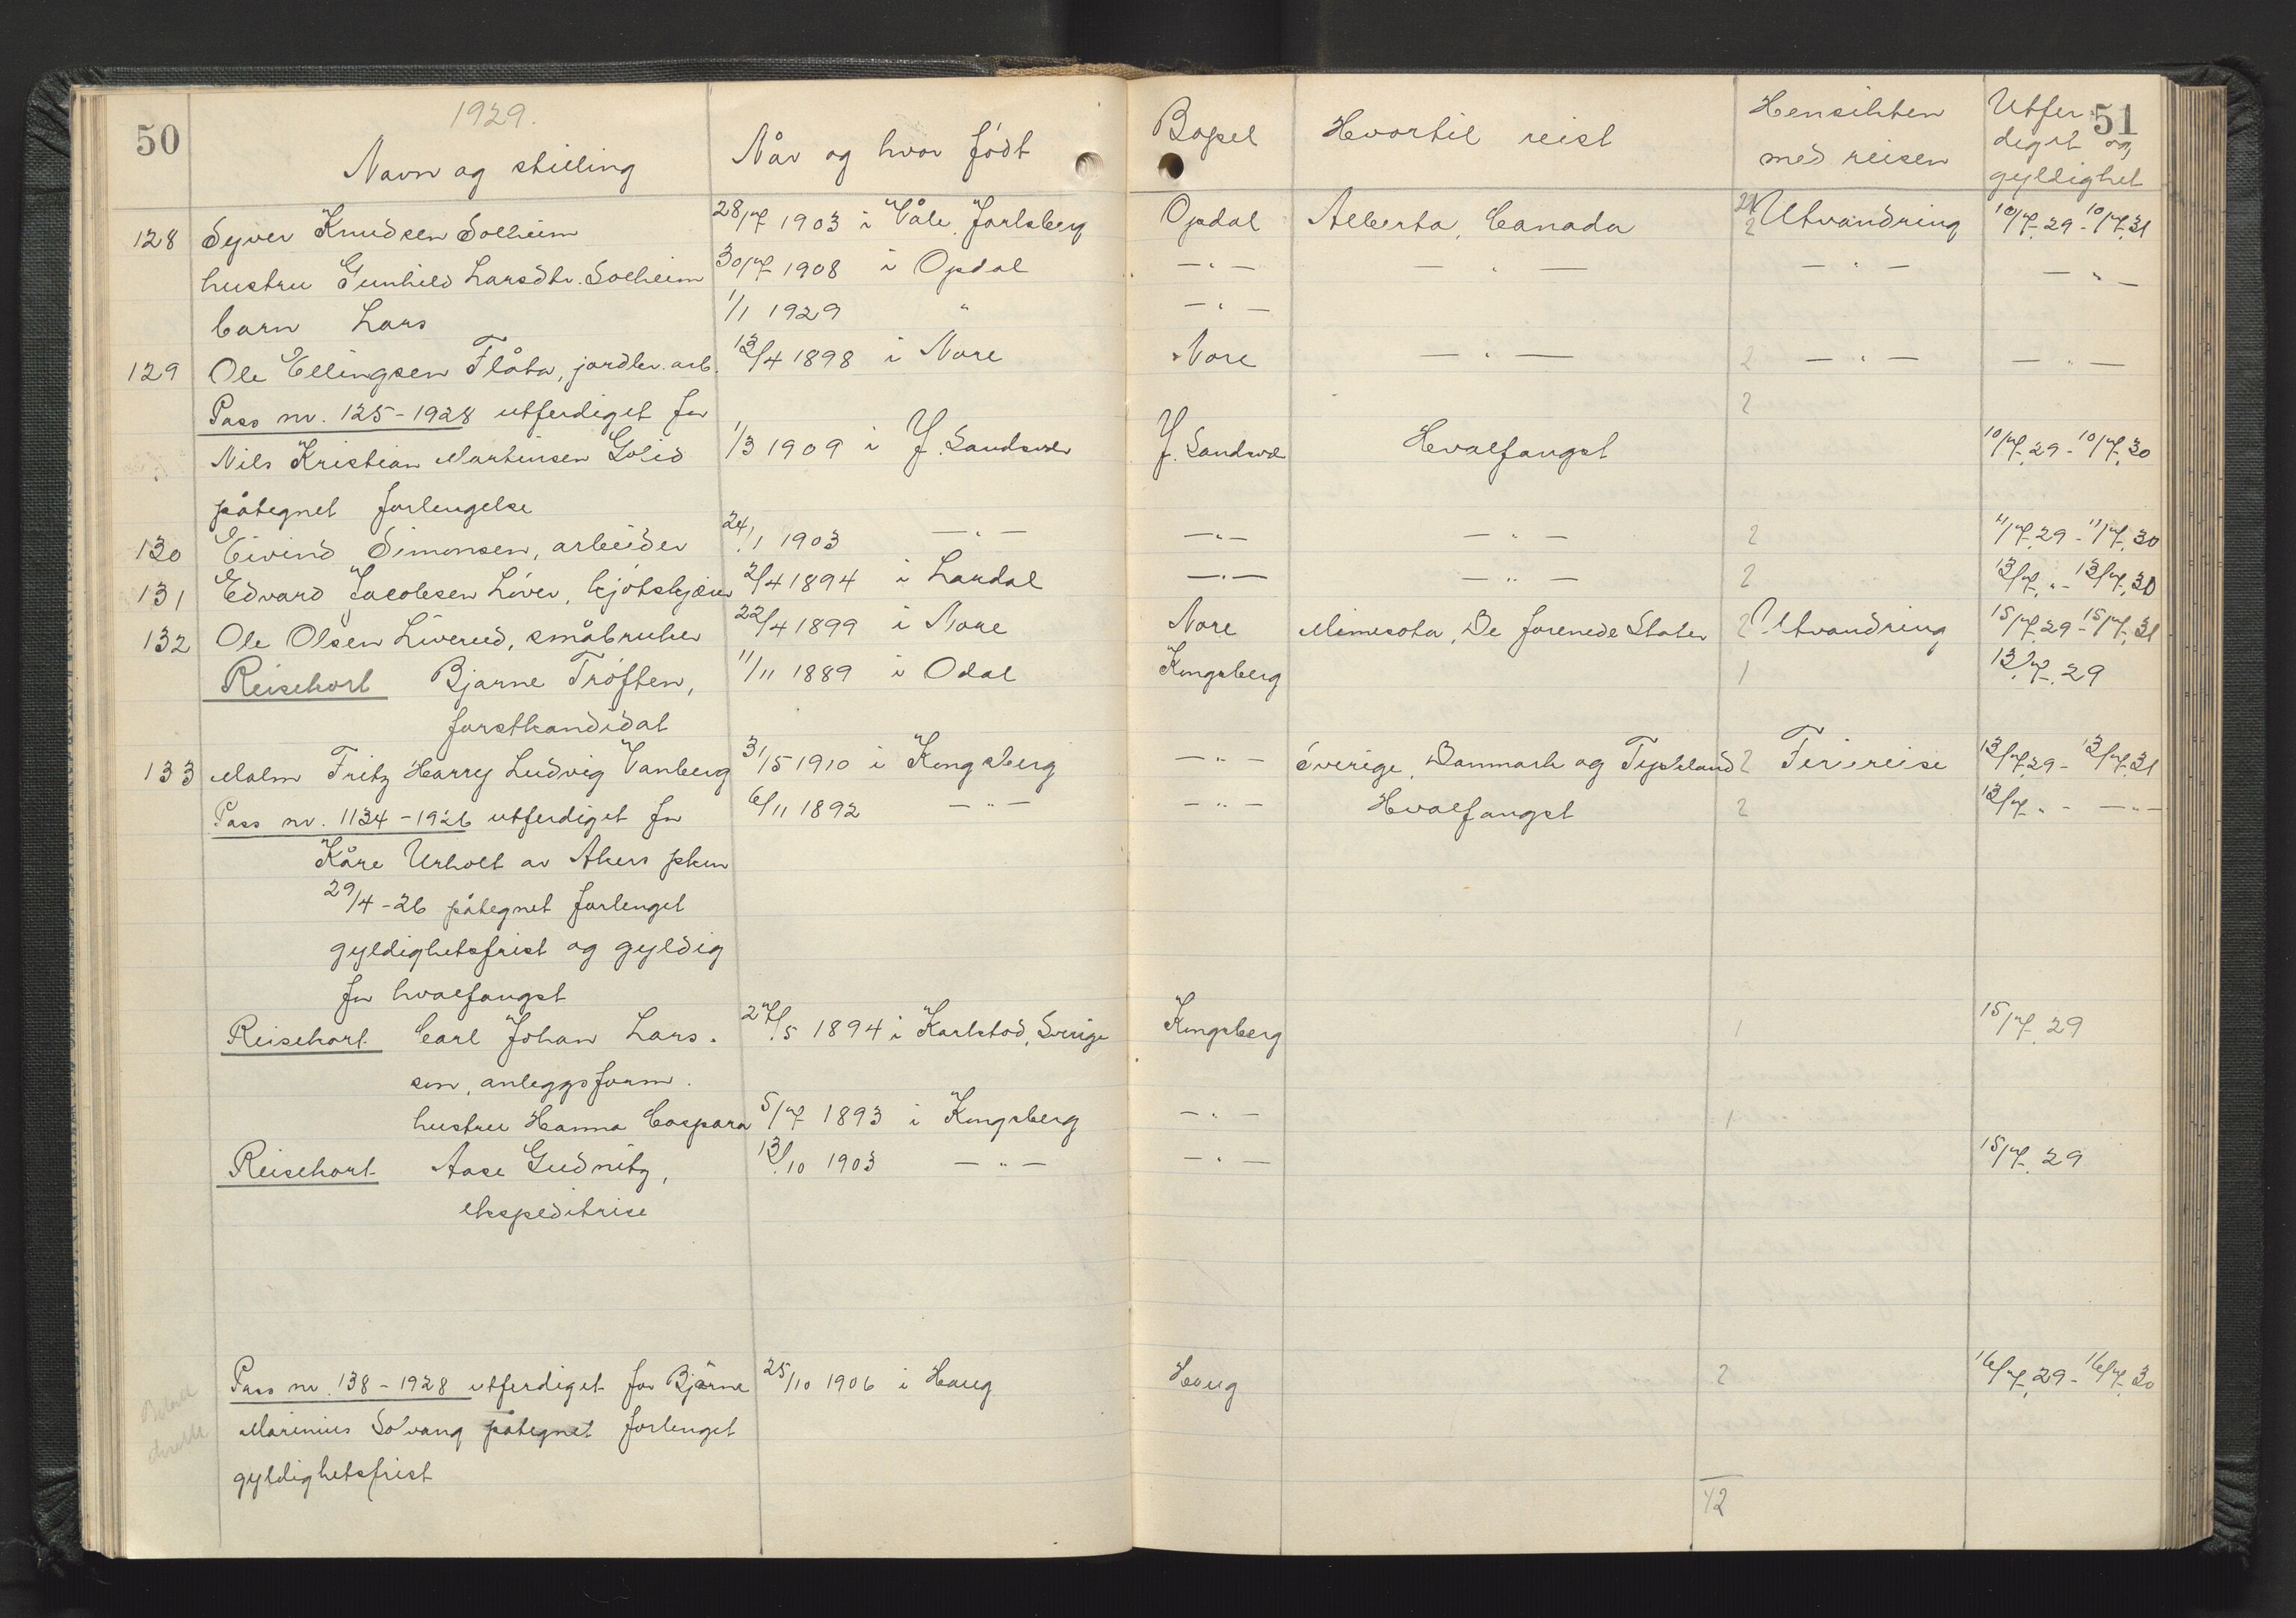 50
1929.
Navn og stilling
Når og hvor født
Bopel
Hvortil reist
Hensikten
med reisen
Utfer
51
diget og
gyldighet
128 Syver Knudsen Solheim 28/7 1903 i Våle, Jarlsberg Opdal Alberta, Canada 2 Utvandring 10/7.29 - 10/7.31
hustru Gunhild Larsdtr. Solheim 30/7 1908 i Opdal — " — — " — — " — — " —
barn Lars 1/1 1929 " — " —
129 Ole Ellingsen Flåta, jordbr. arb. 13/4 1898 i Nore Nore — " — 2 — " — — " —
Pass nr. 125 - 1928 utferdiget for 2
Nils Kristian Martinsen Golid 1/3 1909 i Y. Sandsvær Y. Sandsvær Hvalfangst 10/7.29 - 10/7.30
påtegnet forlengelse
130 Eivind Simonsen, arbeider 24/1 1903 — " — — " — — " — 2 11/7.29 - 11/7.30
131 Edvard Jacobsen Løver, kjøtskjærer 2/4 1894 i Lardal — " — — " — 2 13/7. " - 13/7.30
132 Ole Olsen Liverud, småbruker 22/4 1899 i Nore Nore Minesota, De forenede Stater 2 Utvandring 15/7.29 - 15/7.31
Reisekort Bjarne Trøften, 11/11 1889 i Odal Kongsberg 1 13/7.29
forstkandidat
133 Malm Fritz Harry Ludvig Vanberg 31/5 1910 i Kongsberg — " — Sverige, Danmark og Tyskland 2 Feriereise 13/7.29 - 13/7.31
Pass nr. 1134 - 1926 utferdiget for 6/11 1892 — " — — " — Hvalfangst 2 13/7. " - — " —
Kåre Urholt av Akers pkm
29/4 - 26 påtegnet forlenget
gyldighetsfrist og gyldig
for hvalfangst
Reisekort Carl Johan Lars- 27/5 1894 i Karlstad, Sverige Kongsberg 1 15/7.29
sen, anleggsform.
hustru Hanna Caspara 5/7 1893 i Kongsberg — " — 1
Reisekort Aase Gudnitz, 13/10 1903 — " — — " — 15/7.29
ekspeditrise
Pass nr. 138 - 1928 utferdiget for Bjarne 25/10 1906 i Haug Haug 2 16/7.29 - 16/7.30
Marinius Solvang påtegnet forlenget
gyldighetsfrist
42